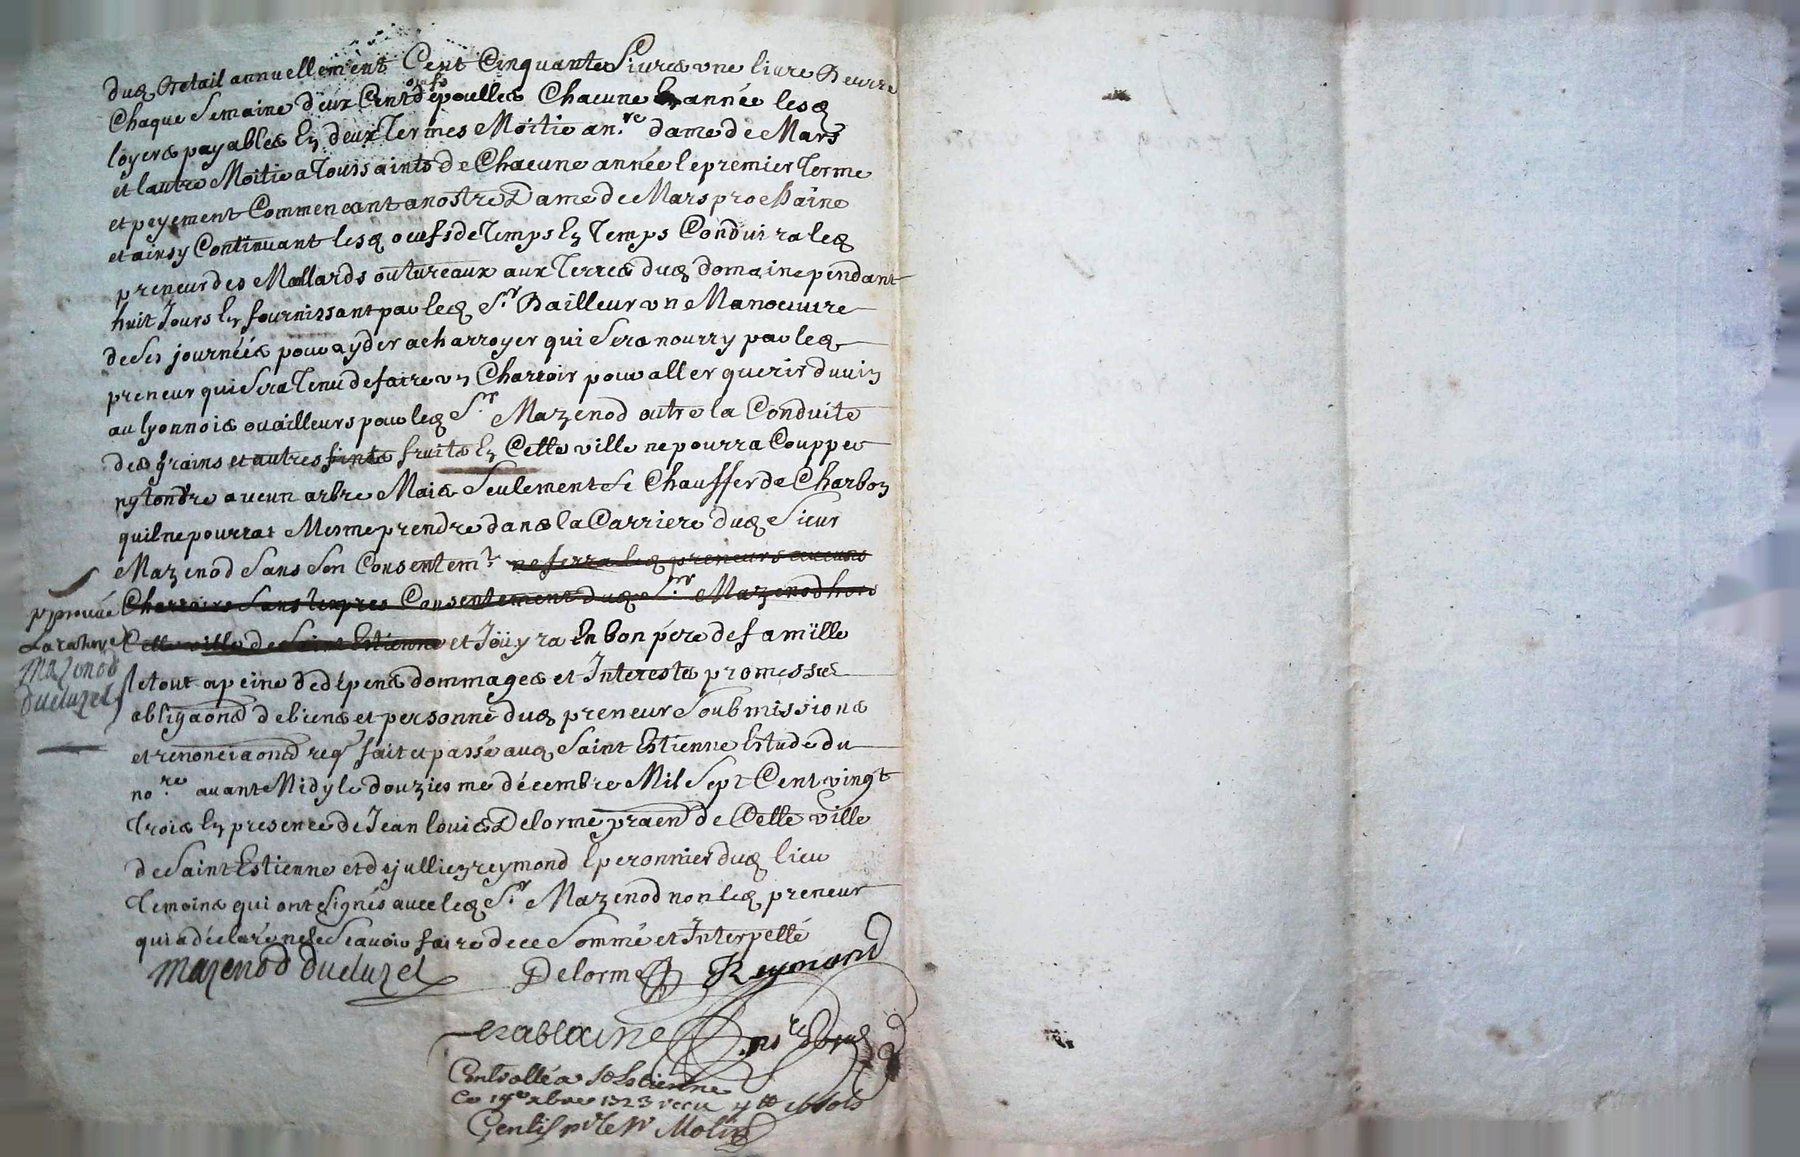 dud Betail annuellement Cent Cinquante Livres une livre Beurre
Chaque Semaine deux Cent oeufs poulles Chacune année lesd
loyers payables En deux Termes Moitie a n.re dame de Mars
et lautre Moitie a Toussaints de Chacune année le premier Terme
et peyement Commencant a nostre Dame de Mars prochaine
et ainsy Continuant lesd oeufs de Temps En Temps Conduira led
preneur des Mallards ou tureaux aux Terres dud domaine pendant
huit Jours En fournissant par led S.r Bailleur un Manoeuvre
de Ses journéés pour ayder a charroyer qui Sera nourry par led
preneur qui Sera Tenu de faire un Charroir pour aller querir du vin
au lyonnois ou ailleurs pour led S.r Mazenod outre la Conduite
des grains et autres fruits En Cette ville ne pourra Coupper
ny tondre aucun arbre Mais Seulement Se Chauffer de Charbon
quil ne pourrat Mesme prendre dans la Carriere dud Sieur
Mazenod Sans Son Consentem.t ne ferra led preneurs aucuns
Charroirs Sans lexpres Consentement dud S.r Mazenod hors
Cette ville de Saint Estienne et Joüyra En bon pére de famille
approuvé
La rature
Mazenod
Ducluzel
le tout a peine de dépens dommages et Interests promesses
obligaons de biens et personne dud preneur Soubmissions
et renonciaons req fait et passé aud Saint Estienne Estude du
no.re avant Midy le douziesme décembre Mil Sept Cent vingt
Trois En presence de Jean louis Delorme praen de Cette ville
de Saint Estienne et de jullien reymond Eperonnier dud lieu
Temoins qui ont signés avec led S.r Mazenod non led preneur
qui a déclaré ne le Scavoir faire de ce Sommé et Interpellé
Mazenod Ducluzel Delorme Reymond
no.re
Controllé a St Estienne
Ce 1723 recu